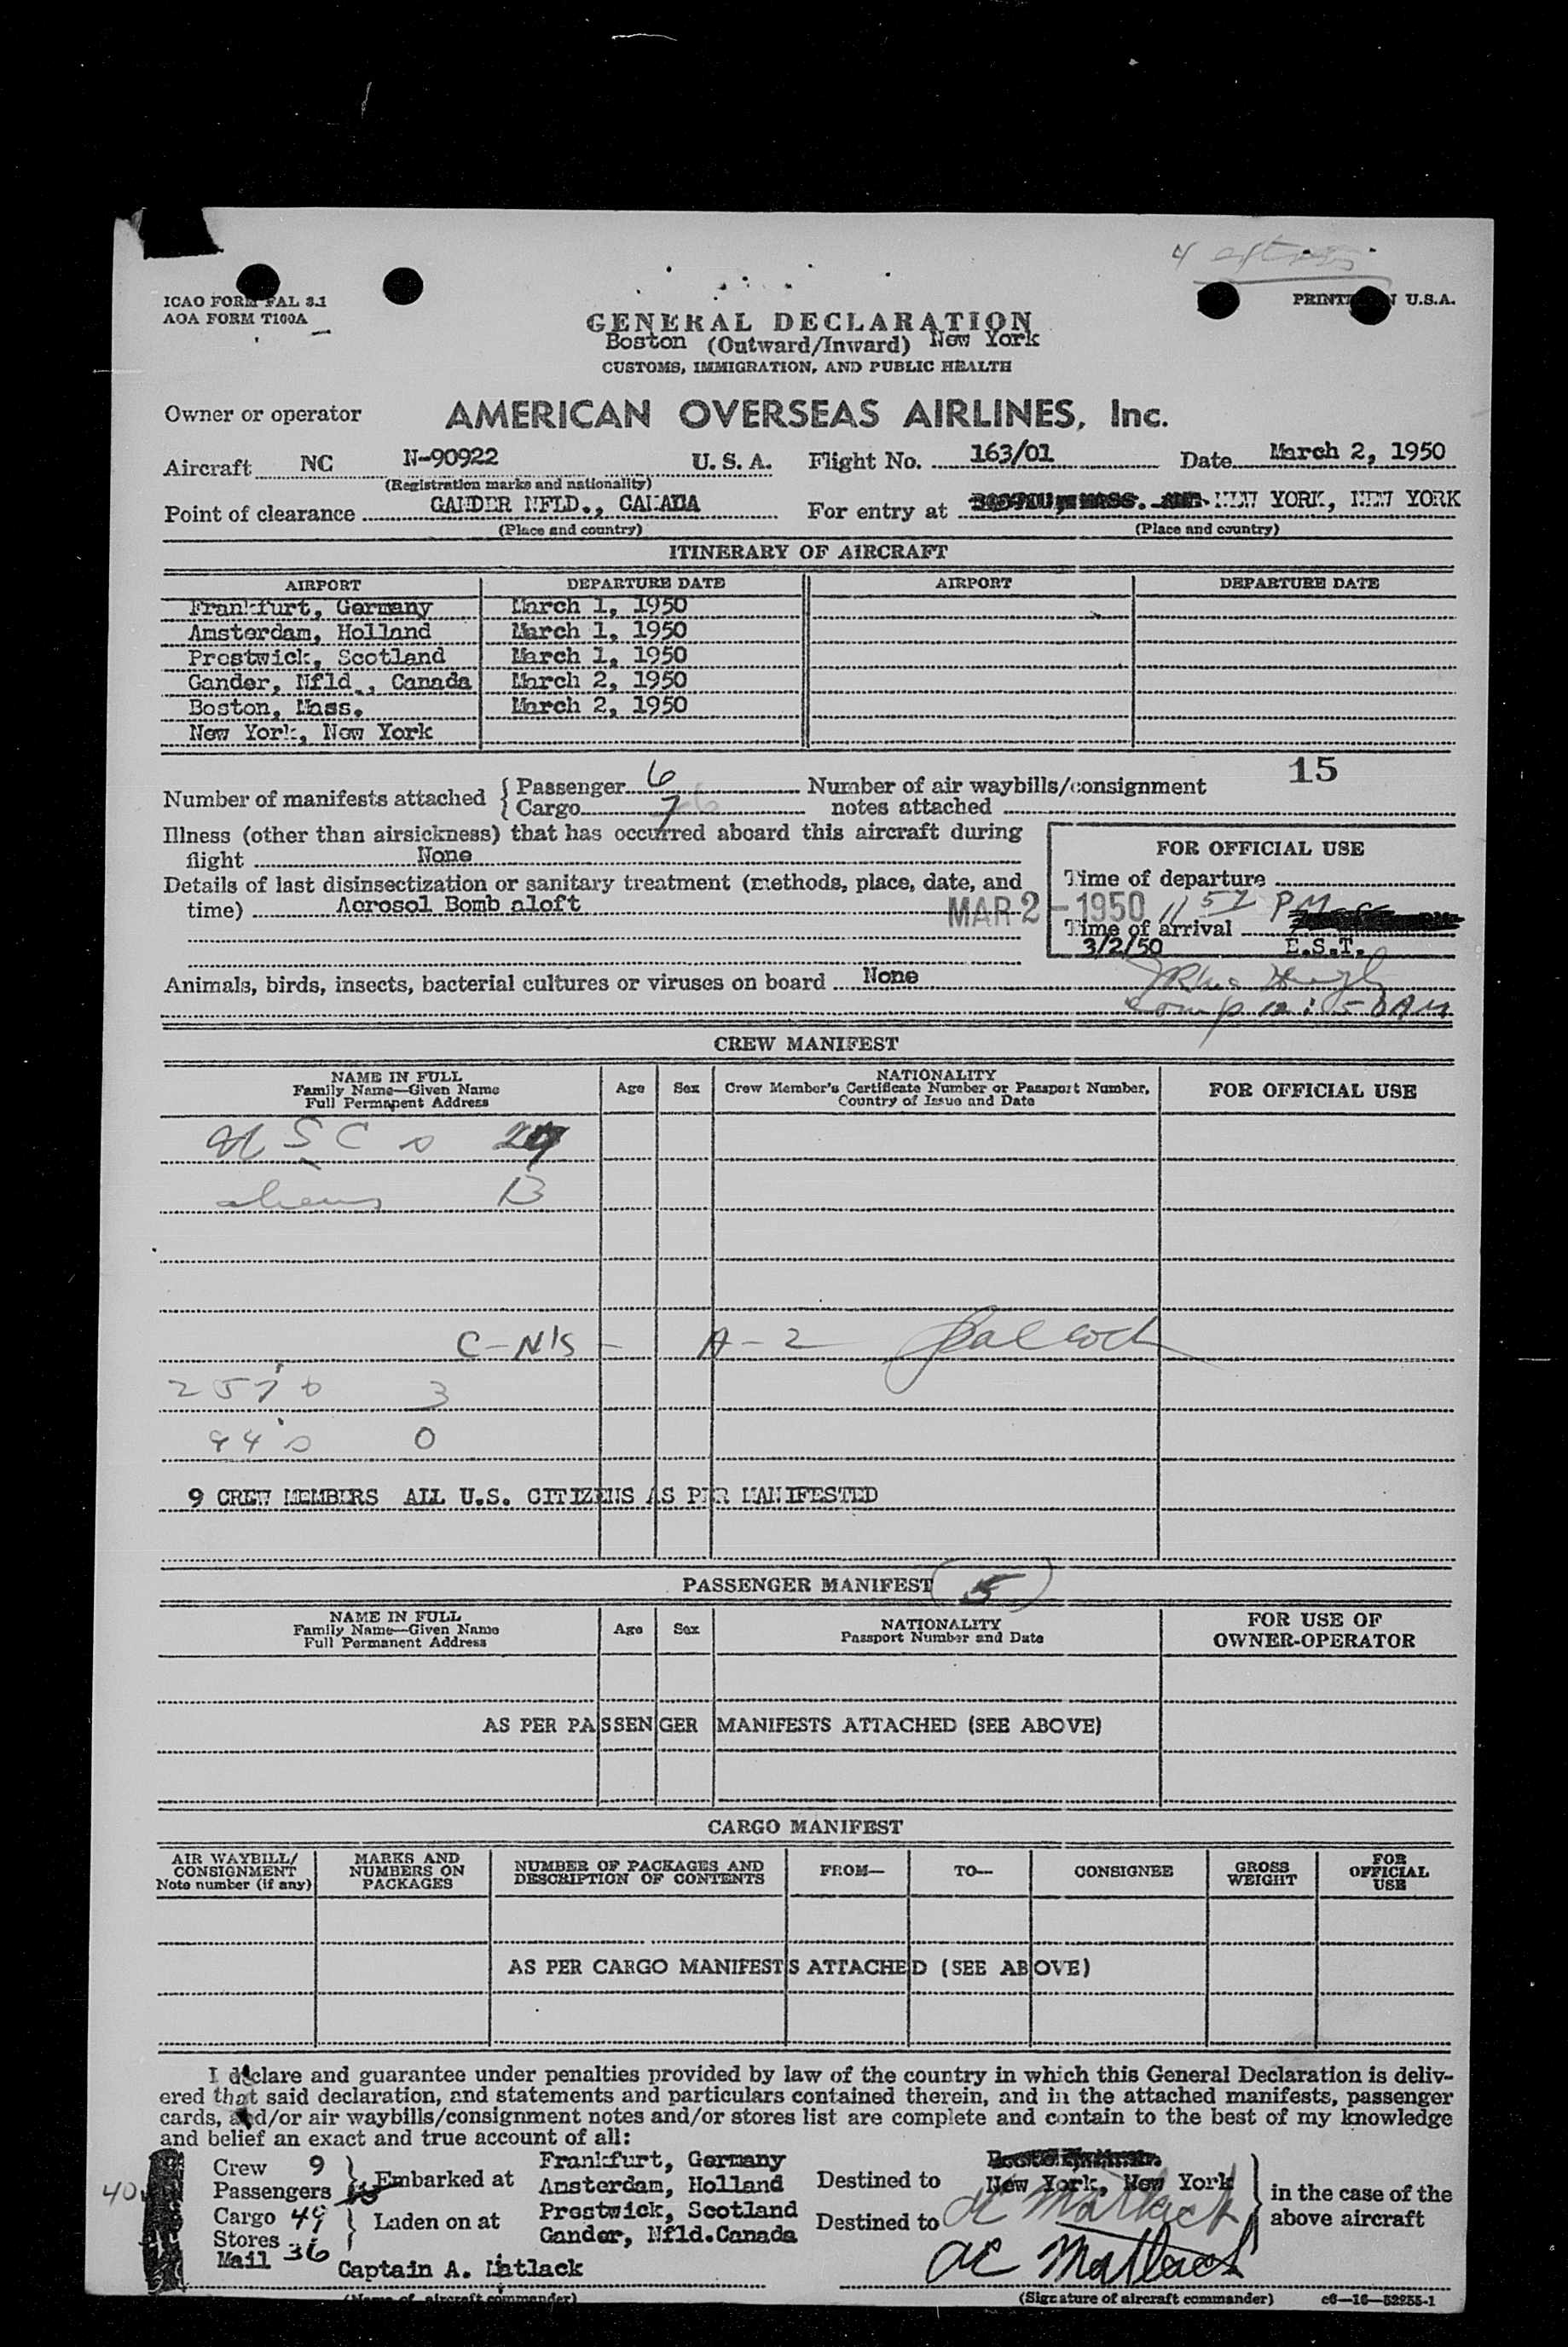 ICAO FORM FAL 3.1
AOA FORM T100A
PRINTED IN U.S.A.
GENERAL DECLARATION
Boston (Outward/Inward) New York
CUSTOMS, IMMIGRATION, AND PUBLIC HEALTH
Owner or operator AMERICAN OVERSEAS AIRLINES, Inc.
Aircraft NC N-90922 U. S. A. Flight No. 163/01 Date March 2, 1950
(Registration marks and nationality)
Point of clearance GANDER NFLD., CANADA For entry at NEW YORK, NEW YORK
(Place and country) (Place and country)
ITINERARY OF AIRCRAFT
AIRPORT DEPARTURE DATE AIRPORT DEPARTURE DATE
Frankfurt, Germany March 1, 1950
Amsterdam, Holland March 1, 1950
Prestwick, Scotland March 1, 1950
Gander, Nfld., Canada March 2, 1950
Boston, Mass. March 2, 1950
New York, New York
Number of manifests attached { Passenger 6 Number of air waybills/consignment 15
{ Cargo 7 notes attached
Illness (other than airsickness) that has occurred aboard this aircraft during
flight None
FOR OFFICIAL USE
Details of last disinsectization or sanitary treatment (methods, place, date, and
time) Aerosol Bomb aloft
Time of departure
MAR 2 - 1950 11 57 PM
Time of arrival
3/2/50 E.S.T.
Animals, birds, insects, bacterial cultures or viruses on board None
CREW MANIFEST
NAME IN FULL
Family Name—Given Name
Full Permanent Address
Age Sex
NATIONALITY
Crew Member's Certificate Number or Passport Number,
Country of Issue and Date
FOR OFFICIAL USE
aliens 13
C-N'S - A-2
3
0
9 CREW MEMBERS ALL U.S. CITIZENS AS PER MANIFESTED
PASSENGER MANIFEST (5)
NAME IN FULL
Family Name—Given Name
Full Permanent Address
Age Sex
NATIONALITY
Passport Number and Date
FOR USE OF
OWNER-OPERATOR
AS PER PASSENGER MANIFESTS ATTACHED (SEE ABOVE)
CARGO MANIFEST
AIR WAYBILL/
CONSIGNMENT
Note number (if any)
MARKS AND
NUMBERS ON
PACKAGES
NUMBER OF PACKAGES AND
DESCRIPTION OF CONTENTS
FROM— TO— CONSIGNEE
GROSS
WEIGHT
FOR
OFFICIAL
USE
AS PER CARGO MANIFESTS ATTACHED (SEE ABOVE)
I declare and guarantee under penalties provided by law of the country in which this General Declaration is deliv-
ered that said declaration, and statements and particulars contained therein, and in the attached manifests, passenger
cards, and/or air waybills/consignment notes and/or stores list are complete and contain to the best of my knowledge
and belief an exact and true account of all:
Crew 9
40 Passengers
Cargo 49
Stores
Mail 36
Embarked at
Laden on at
Frankfurt, Germany
Amsterdam, Holland
Prestwick, Scotland
Gander, Nfld.Canada
Destined to New York, New York
Destined to AC Matlack
in the case of the
above aircraft
Captain A. Matlack AC Matlack
(Name of aircraft commander) (Signature of aircraft commander) c6—16—52255-1